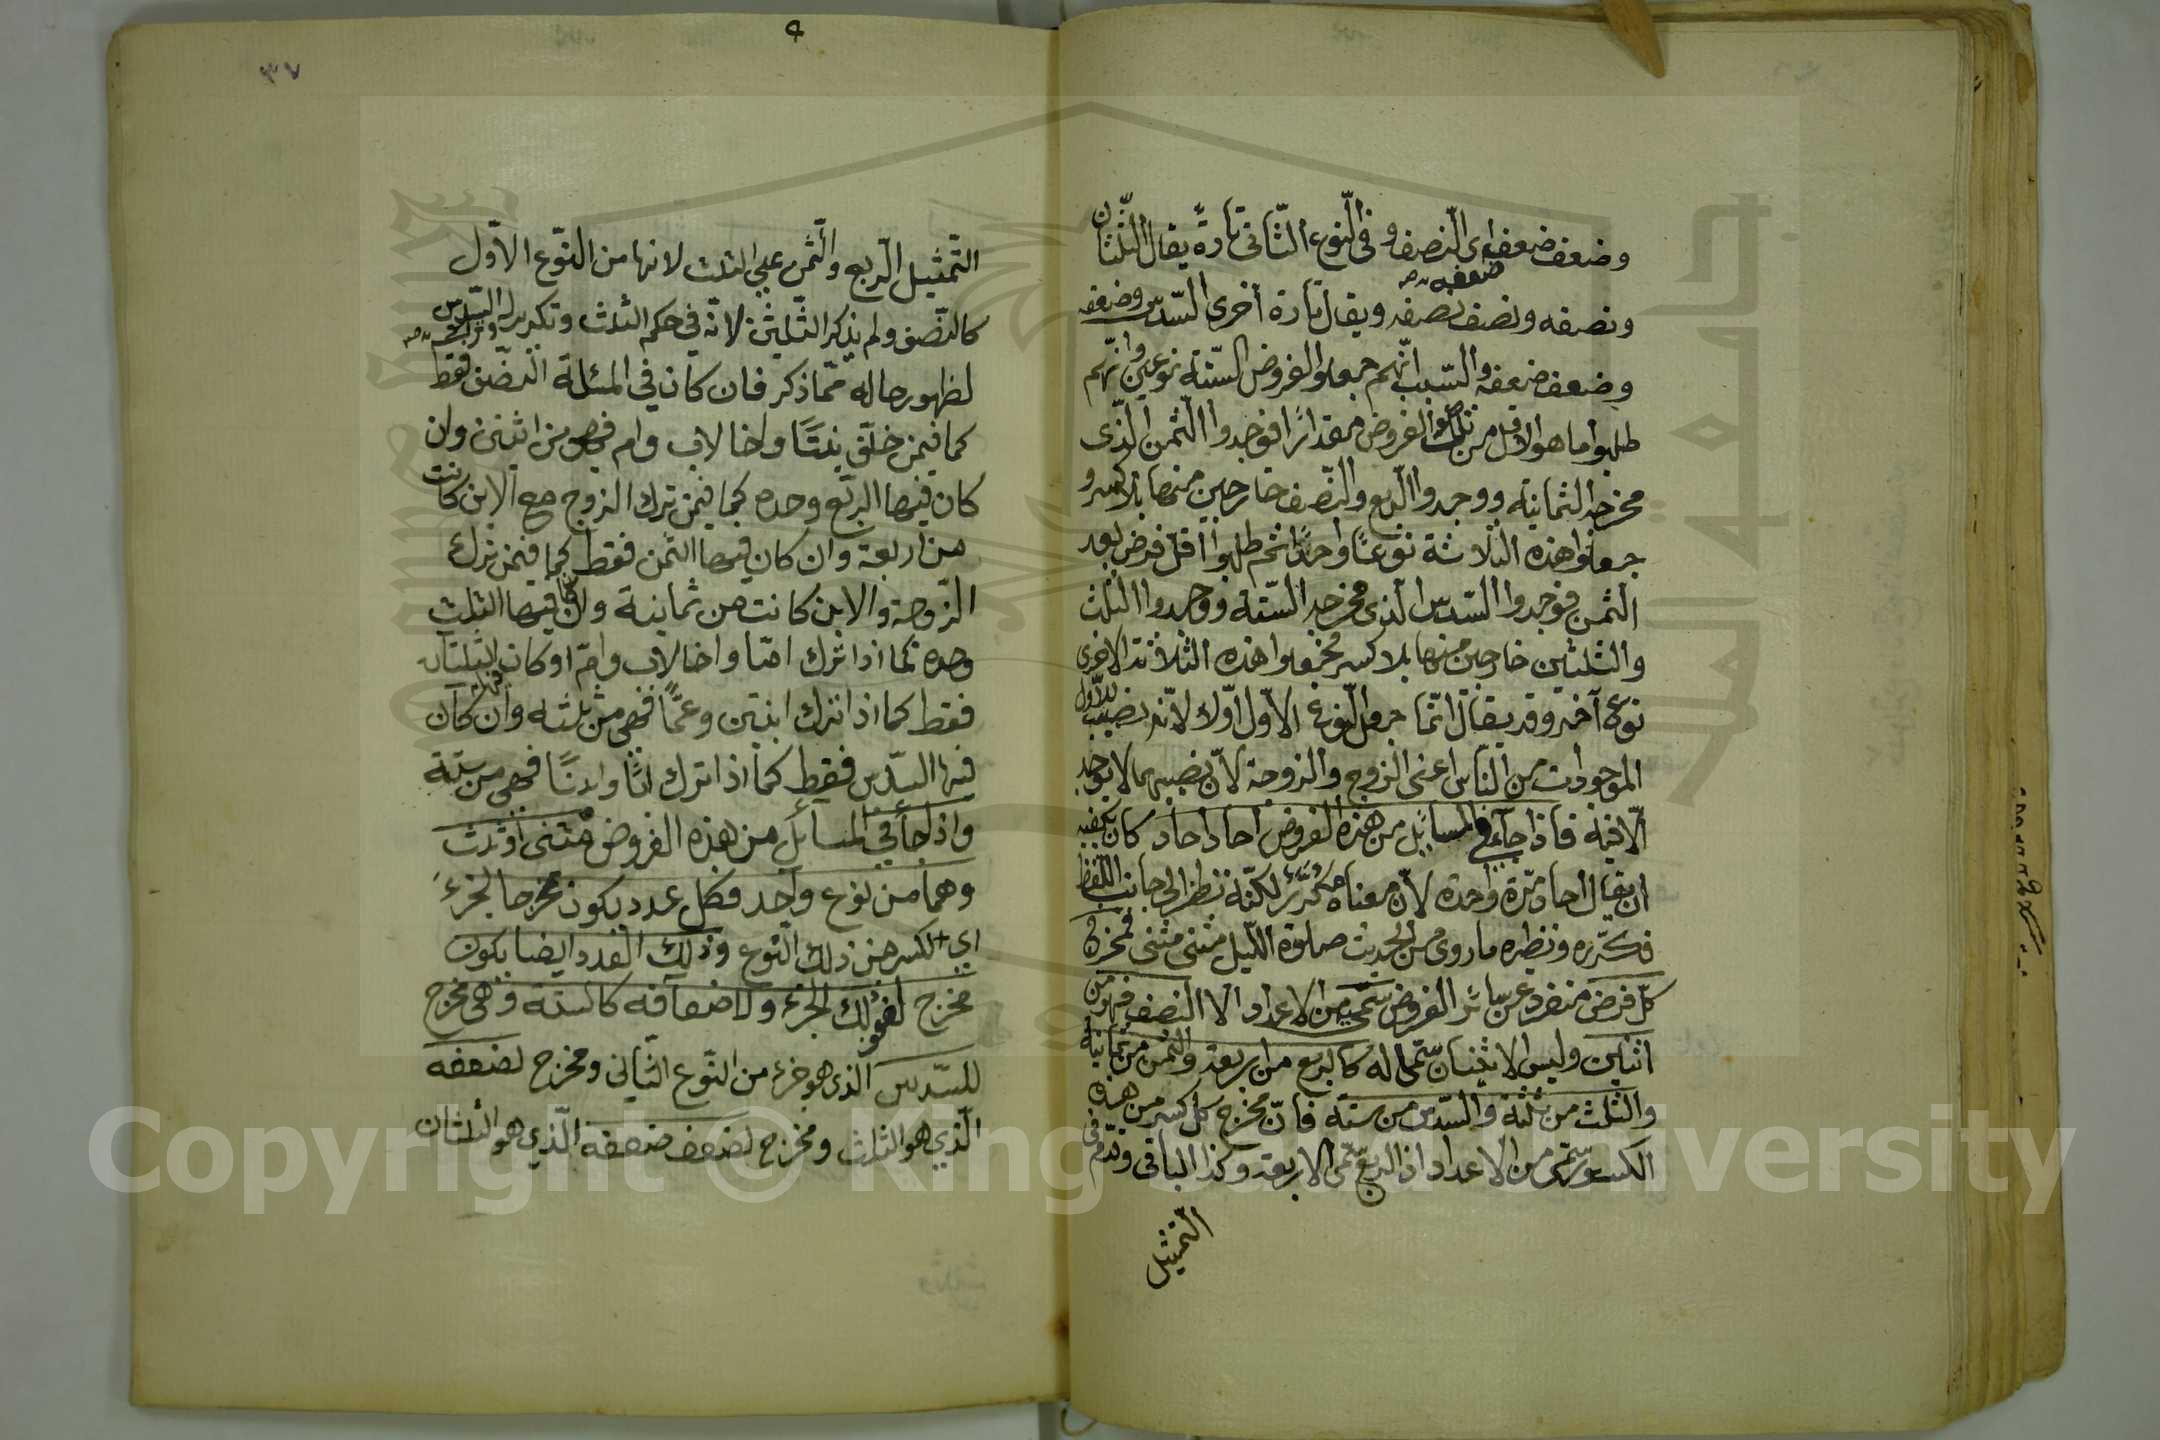 وضعف ضعفه اى النصف و فى النّوع الثّانى تارةً يقال الثّلثان
ضعفه صح
ونصفه ونصف نصفه ويقال تارة أخرى السّدس وضعفه
وضعف ضعفه والسّبب انّهم جعلوا الفروض السّتة نوعين وانّهم
طلبوا ما هو الاقل من تلك الفروض مقدارًا فوجدوا الثّمن الّذى
مخرجه الثمانية ووجدوا الربع والنّصف خارجين منها بلا كسر و
جعلوا هذه الثلاثة نوعًا واحدًا ثم طلبوا اقلّ فرض بعد
الثمن فوجدوا السّدس الّذى مخرجه السّتة ووجدوا الثلث
والثلثين خارجين منها بلا كسر فجعلوا هذه الثلاثة الاخرى
نوع آخر وقد يقال انّما جعل النّوع الاوّل اوّلا لانّه نصيب للاوّل
الموجودات من النّاس اعنى الزوج والزوجة لانّ نصيبهما لا يوجد
الّا فيه فاذا جآء فى المسائل من هذه الفروض احاد احاد كان يكفيه
ان يقال احاد مرّة واحدة لانّ معناه مكرّر لكنّه نظر الى جانب اللفظ
فكرّره ونظيره ما روى من الحديث صلوة اللّيل مثنى مثنى فمخرج
كلّ فرض منفرد عن سائر الفروض سميّه من الاعداد الا النصف فهو من
اثنين وليس الاثنان سمّى له كالربع من اربعة والثمن من ثمانية
والثلث من ثلثة والسّدس من ستّة فانّ مخرج كل كسر من هذه
الكسور سمّى من الاعداد اذ الربع سمّى الاربعة وكذا الباقى وقدّم فى
التمثيل
٣٧
التّمثيل الرّبع والثّمن على الثلث لانها من النّوع الاوّل
كالنّصف ولم يذكر الثّلثين لانّه فى حكم الثلث وتكريره السّدس
لظهور حاله ممّا ذكر فان كان فى المسئلة النصّف فقط
كما فيمن خلّف بنتًا واخا لاب وام فهى من اثنين وان
كان فيها الربع وحده كما فيمن ترك الزوج مع الابن كانت
من اربعة وان كان فيها الثمن فقط كما فيمن ترك
الزّوجة والابن كانت من ثمانية وان كان فيها الثلث
وحده كما اذا ترك امّا واخا لاب وامّ او كان فيها الثلثان
فقط كما اذا ترك ابنتين وعمًّا فهى من ثلثة وان كان
فيها السّدس فقط كما اذا ترك ابًا وابنًا فهى من ستّة
واذا جآء فى المسائل من هذه الفروض مثنى او ثلث
وهما من نوع واحد فكل عدد يكون مخرجا لجزء
اى لكسر من ذلك النّوع فذلك العدد ايضا يكون
مخرج لضعف ذلك الجزء ولاضعافه كالستة وهى مخرج
للسّدس الّذى هو جزء من النّوع الثّانى ومخرج لضعفه
الّذي هو الثلث ومخرج لضعف ضعفه الّذي هو الثلثان
Copyright © King Saud University